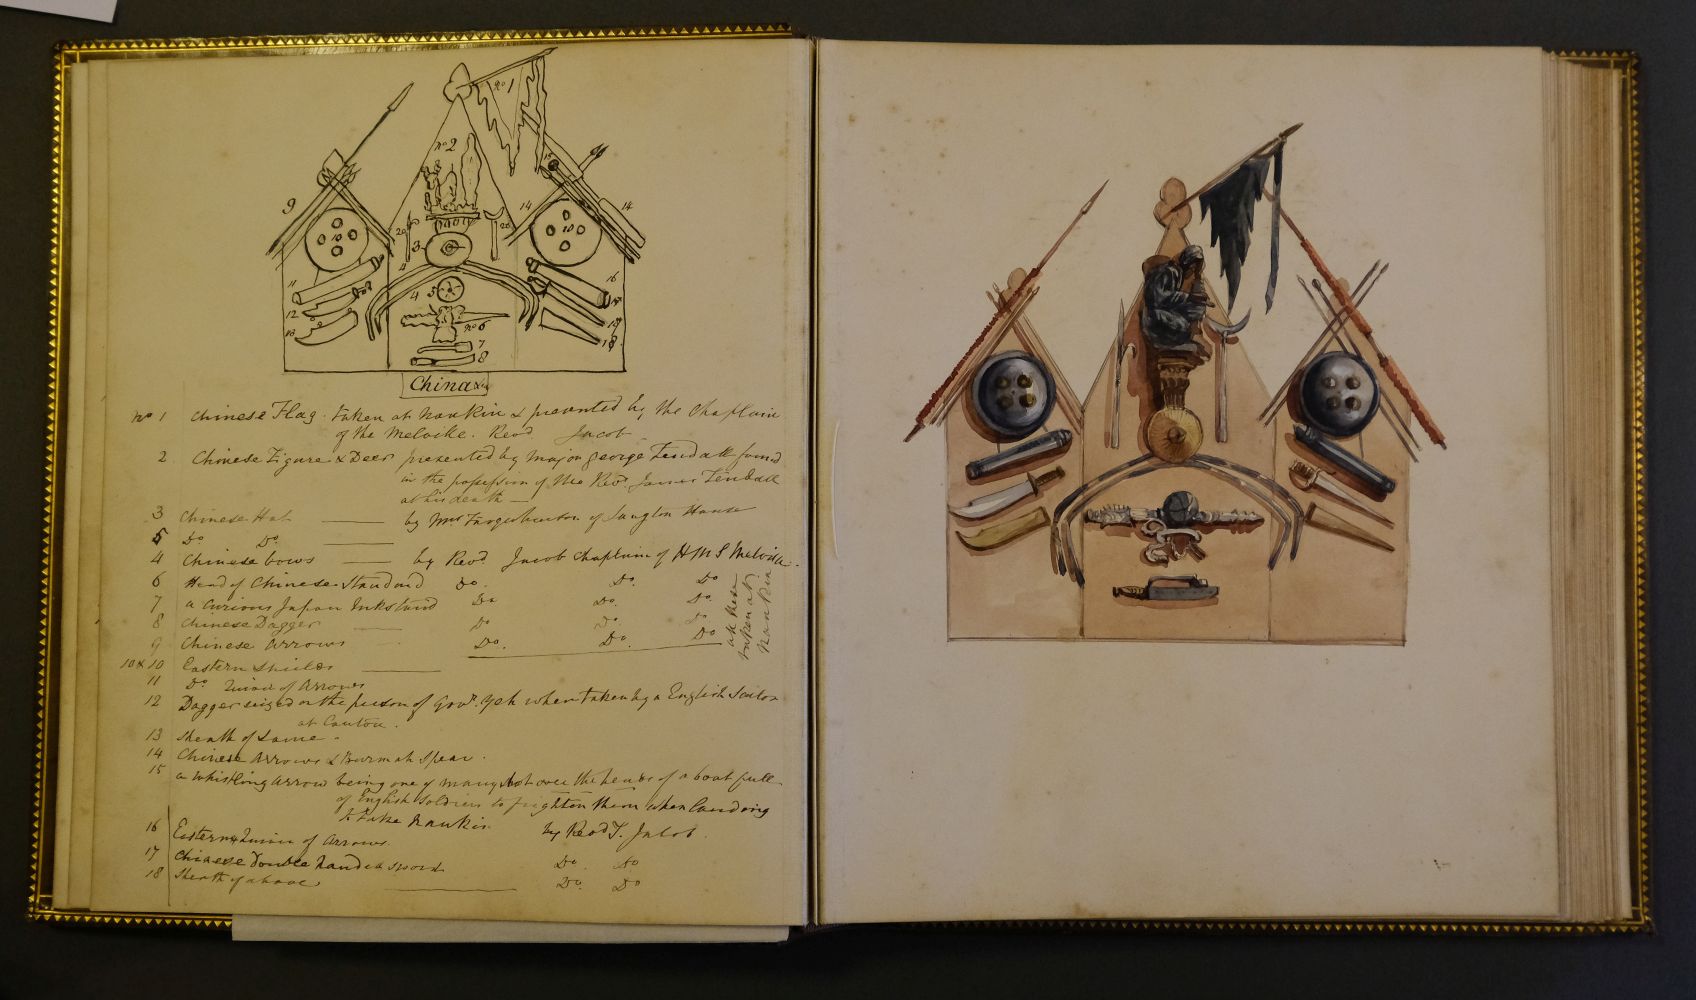 No 1
No 2
9
15
14
14
10
10
20
20
3
4
4
5
11
12
13
16
17
18
No 6
7
8
China &c
No 1 Chinese Flag. taken at Nankin & presented by the Chaplain
of the Melville. Revd Jacob
2 Chinese Figure & Deer presented by Major George Tendall found
in the possession of the Revd James Tendall
at his death
3 Chinese Hat by Mrs of Langton House
5 Do Do
4 Chinese bows by Revd Jacob Chaplain of HMS Melville.
6 Head of Chinese Standard Do. Do. Do
7 a Curious Japan Inkstand Do Do. Do.
8 Chinese Dagger Do Do Do
9 Chinese Arrows Do. Do. Do
all these
taken at
Nankin
10 & 10 Eastern Shields
11 Do Quiver of Arrows
12 Dagger seized on the person of Govr. Yeh when taken by a English Sailor
at Canton.
13 Sheath of Same.
14 Chinese Arrows & Burmah Spear.
15 a Whistling Arrow being one of many shot over the heads of a boat full
of English Soldiers to frighten them when landing
to take Nankin by Revd J. Jacob.
16 Eastern Quiver of Arrows.
17 Chinese double handed sword Do Do
18 Sheath of above Do. Do